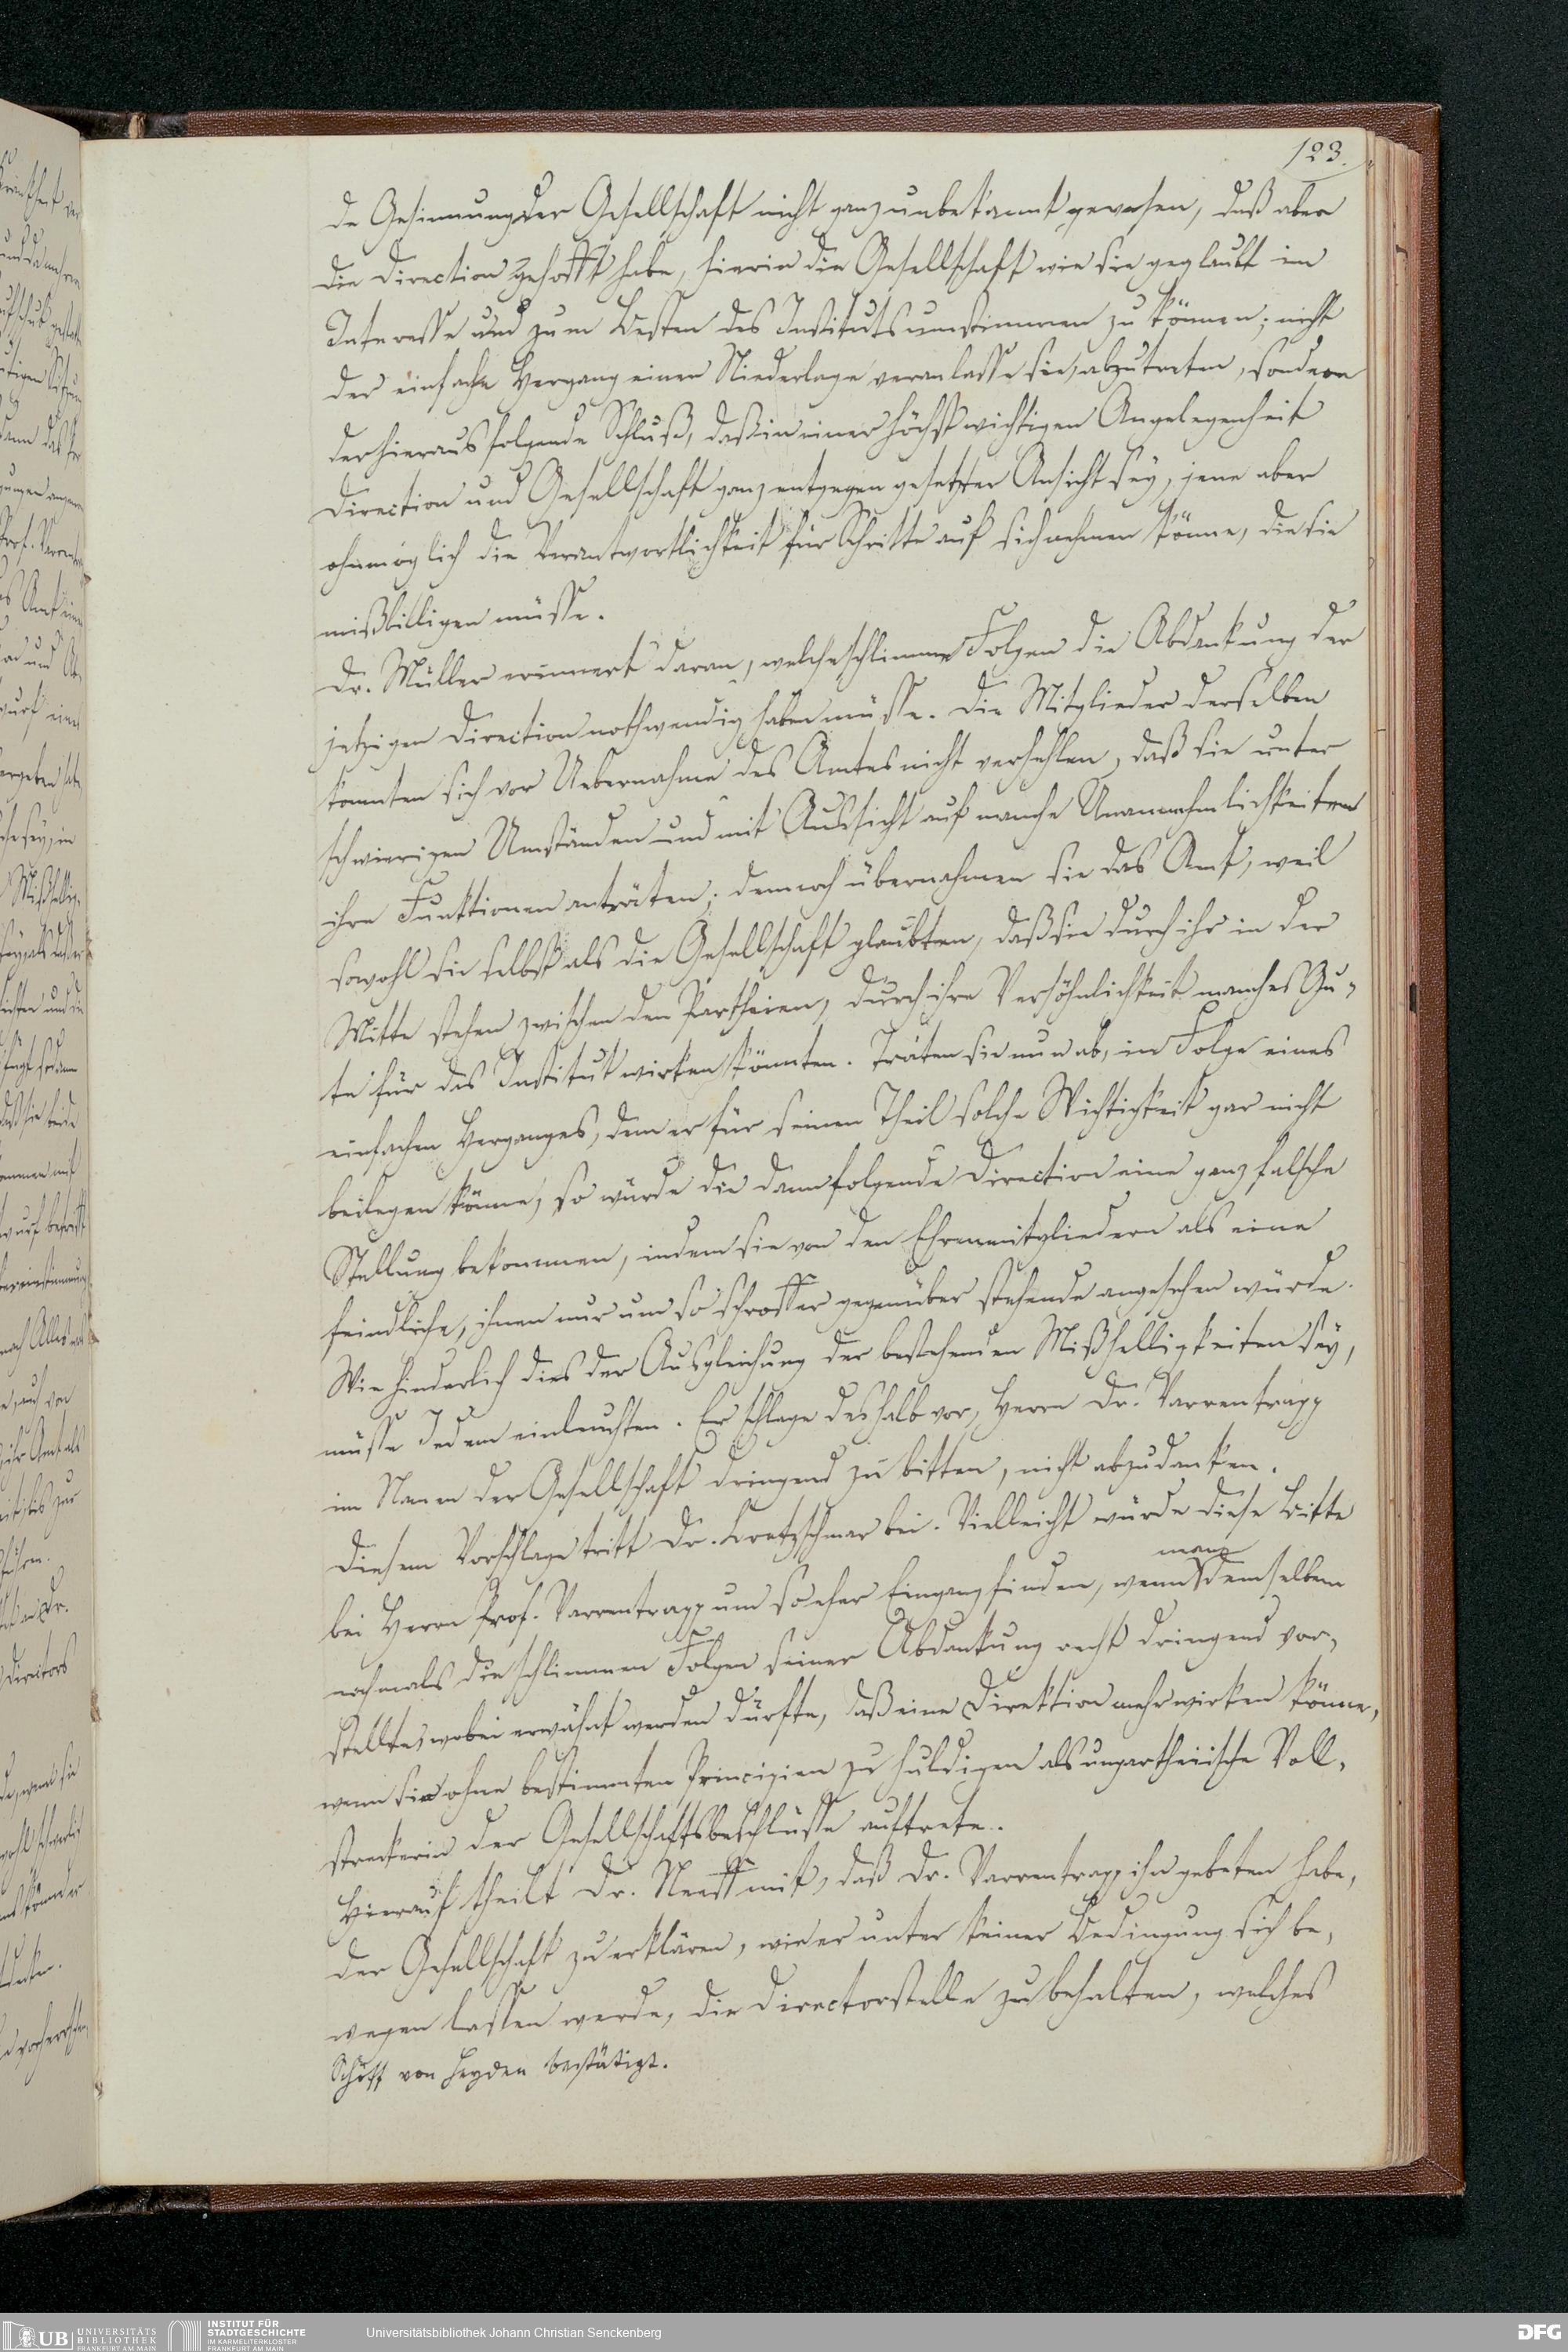 123.
de Gesinnung der Gesellschaft nicht ganz unbekannt gewesen, daß aber
die Direction gehofft habe, hierin die Gesellschaft wie sie geglaubt im
Interesse und zum Besten des Instituts umstimmen zu können; nicht
der einfache Hergang einer Niederlage veranlasse sie, abzutreten, sondern
der hieraus folgende Schluß, daß in einer höchst wichtigen Angelegenheit
Direction und Gesellschaft ganz entgegen gesetzter Ansicht sey, jene aber
ohnmöglich die Verantwortlichkeit für Schritte auf sich nehmen könne, die sie
mißbilligen müsse.
Dr. Müller erinnert daran, welche schlimme Folgen die Abdankung der
jetzigen Direction nothwendig haben müsse. Die Mitglieder derselben
konnten sich vor Uebernahme des Amtes nicht verhehlen, daß sie unter
schwierigen Umständen und mit Aussicht auf manche Unannehmlichkeiten
ihre Funktionen anträten; dennoch übernahmen sie das Amt, weil
sowohl sie selbst als die Gesellschaft glaubten, daß sie durch ihr in der
Mitte stehen zwischen den Partheien, durch ihre Versöhnlichkeit manches Gu-
te für das Institut wirken könnten. Träten sie nun ab, in Folge eines
einfachen Herganges, dem er für seinen Theil solche Wichtigkeit gar nicht
beilegen könne, so würde die dann folgende Direction eine ganz falsche
Stellung bekommen, indem sie von den Ehrenmitgliedern als eine
feindliche, ihnen nur um so schroffer gegenüber stehende angesehen würde.
Wie hinderlich dies der Ausgleichung der bestehenden Mißhelligkeiten sey,
müsse Jedem einleuchten. Er schlage deshalb vor, Herrn Dr. Varrentrapp
im Namen der Gesellschaft dringend zu bitten, nicht abzudanken.
Diesem Vorschlage tritt Dr. Kretzschmar bei. Vielleicht würde diese Bitte
bei Herrn Prof. Varrentrapp um so eher Eingang finden, wenn man demselben
nochmals die schlimmen Folgen seiner Abdankung recht dringend vor-
stellte, wobei erwähnt werden dürfte, daß eine Direktion mehr wirken könne,
wenn sie ohne bestimmten Principien zu huldigen als unpartheiische Voll-
streckerin der Gesellschaftsbeschlüsse auftrete.
Hierauf theilt Dr. Neeff mit, daß Dr. Varrentrapp ihn gebeten habe,
der Gesellschaft zu erklären, wie er unter keiner Bedingung sich be-
wegen lassen werde, die Directorstelle zu behalten, welches
Schöff von Heyden bestätigt.
UB UNIVERSITÄTS
BIBLIOTHEK
FRANKFURT AM MAIN
INSTITUT FÜR
STADTGESCHICHTE
IM KARMELITERKLOSTER
FRANKFURT AM MAIN
Universitätsbibliothek Johann Christian Senckenberg
DFG